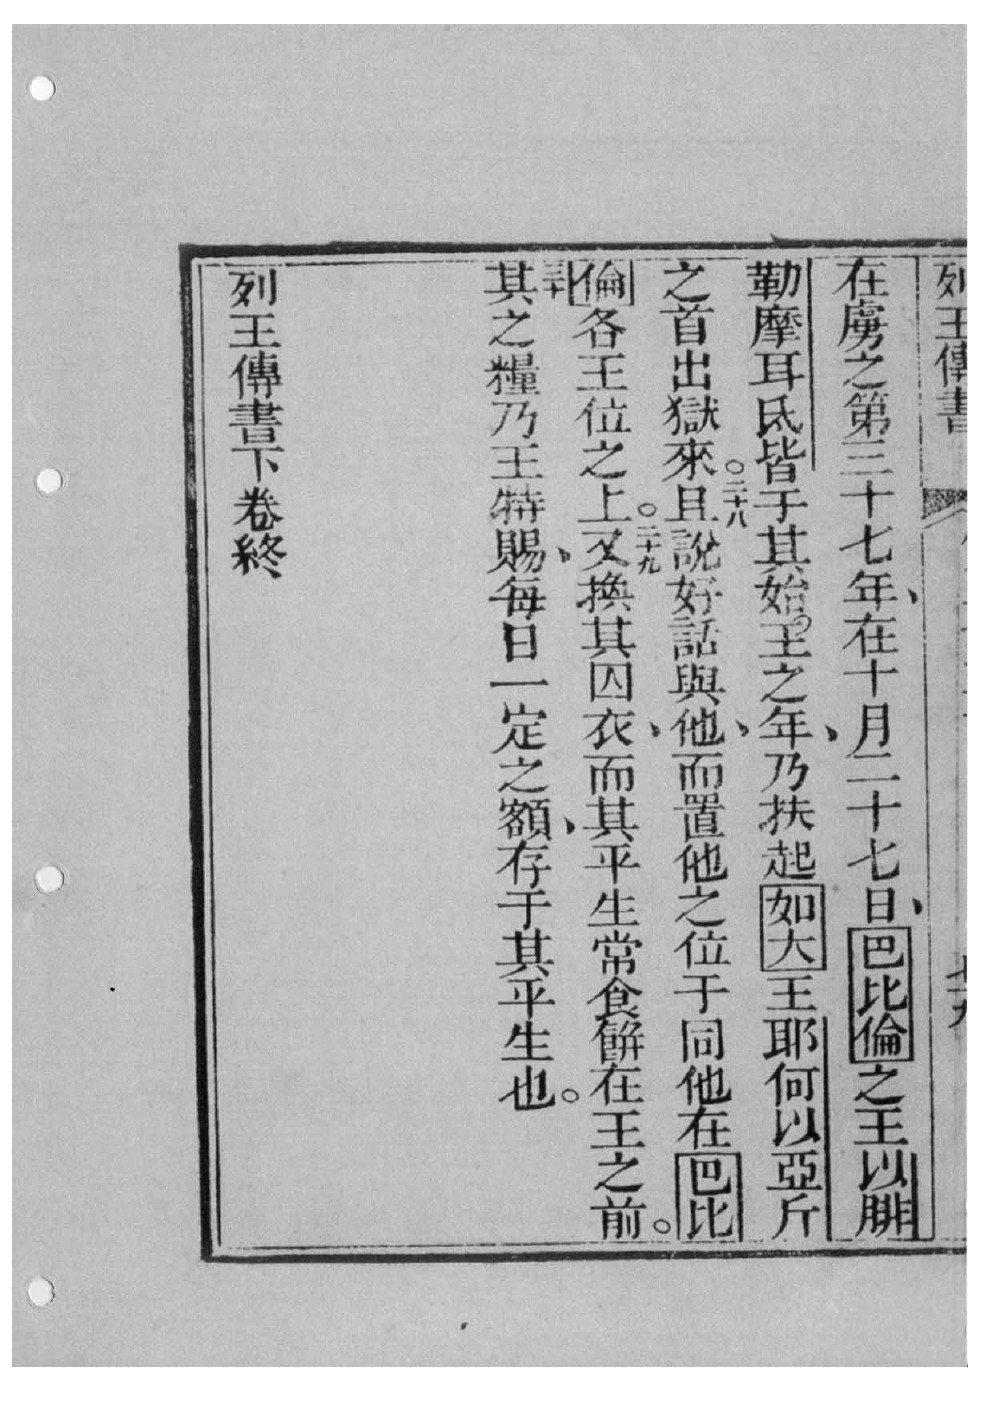 列王傳書
七十九
在虜之第三十七年、在十月二十七日、巴比倫之王以腓
勒摩耳氐皆于其始王之年、乃扶起如大王耶何以亞斤
之首出獄來。二十八且說好話與他、而置他之位于同他在巴比
倫各王位之上。二十九又換其囚衣、而其平生常食餅在王之前。
三十其之糧乃王特賜、每日一定之額、存于其平生也。
列王傳書下卷終